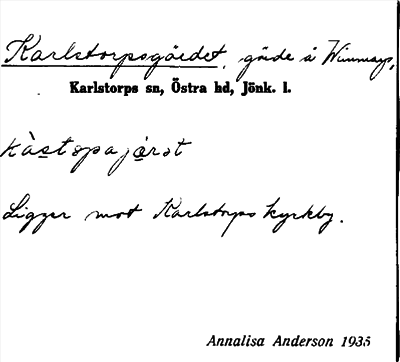 Karlstorpsgärdet, gärde å Wimmarp,
Karlstorps sn, Östra hd, Jönk. l.
kàstopajǝrǝt
Ligger mot Karlstorps kyrkby.
Annalisa Anderson 1935